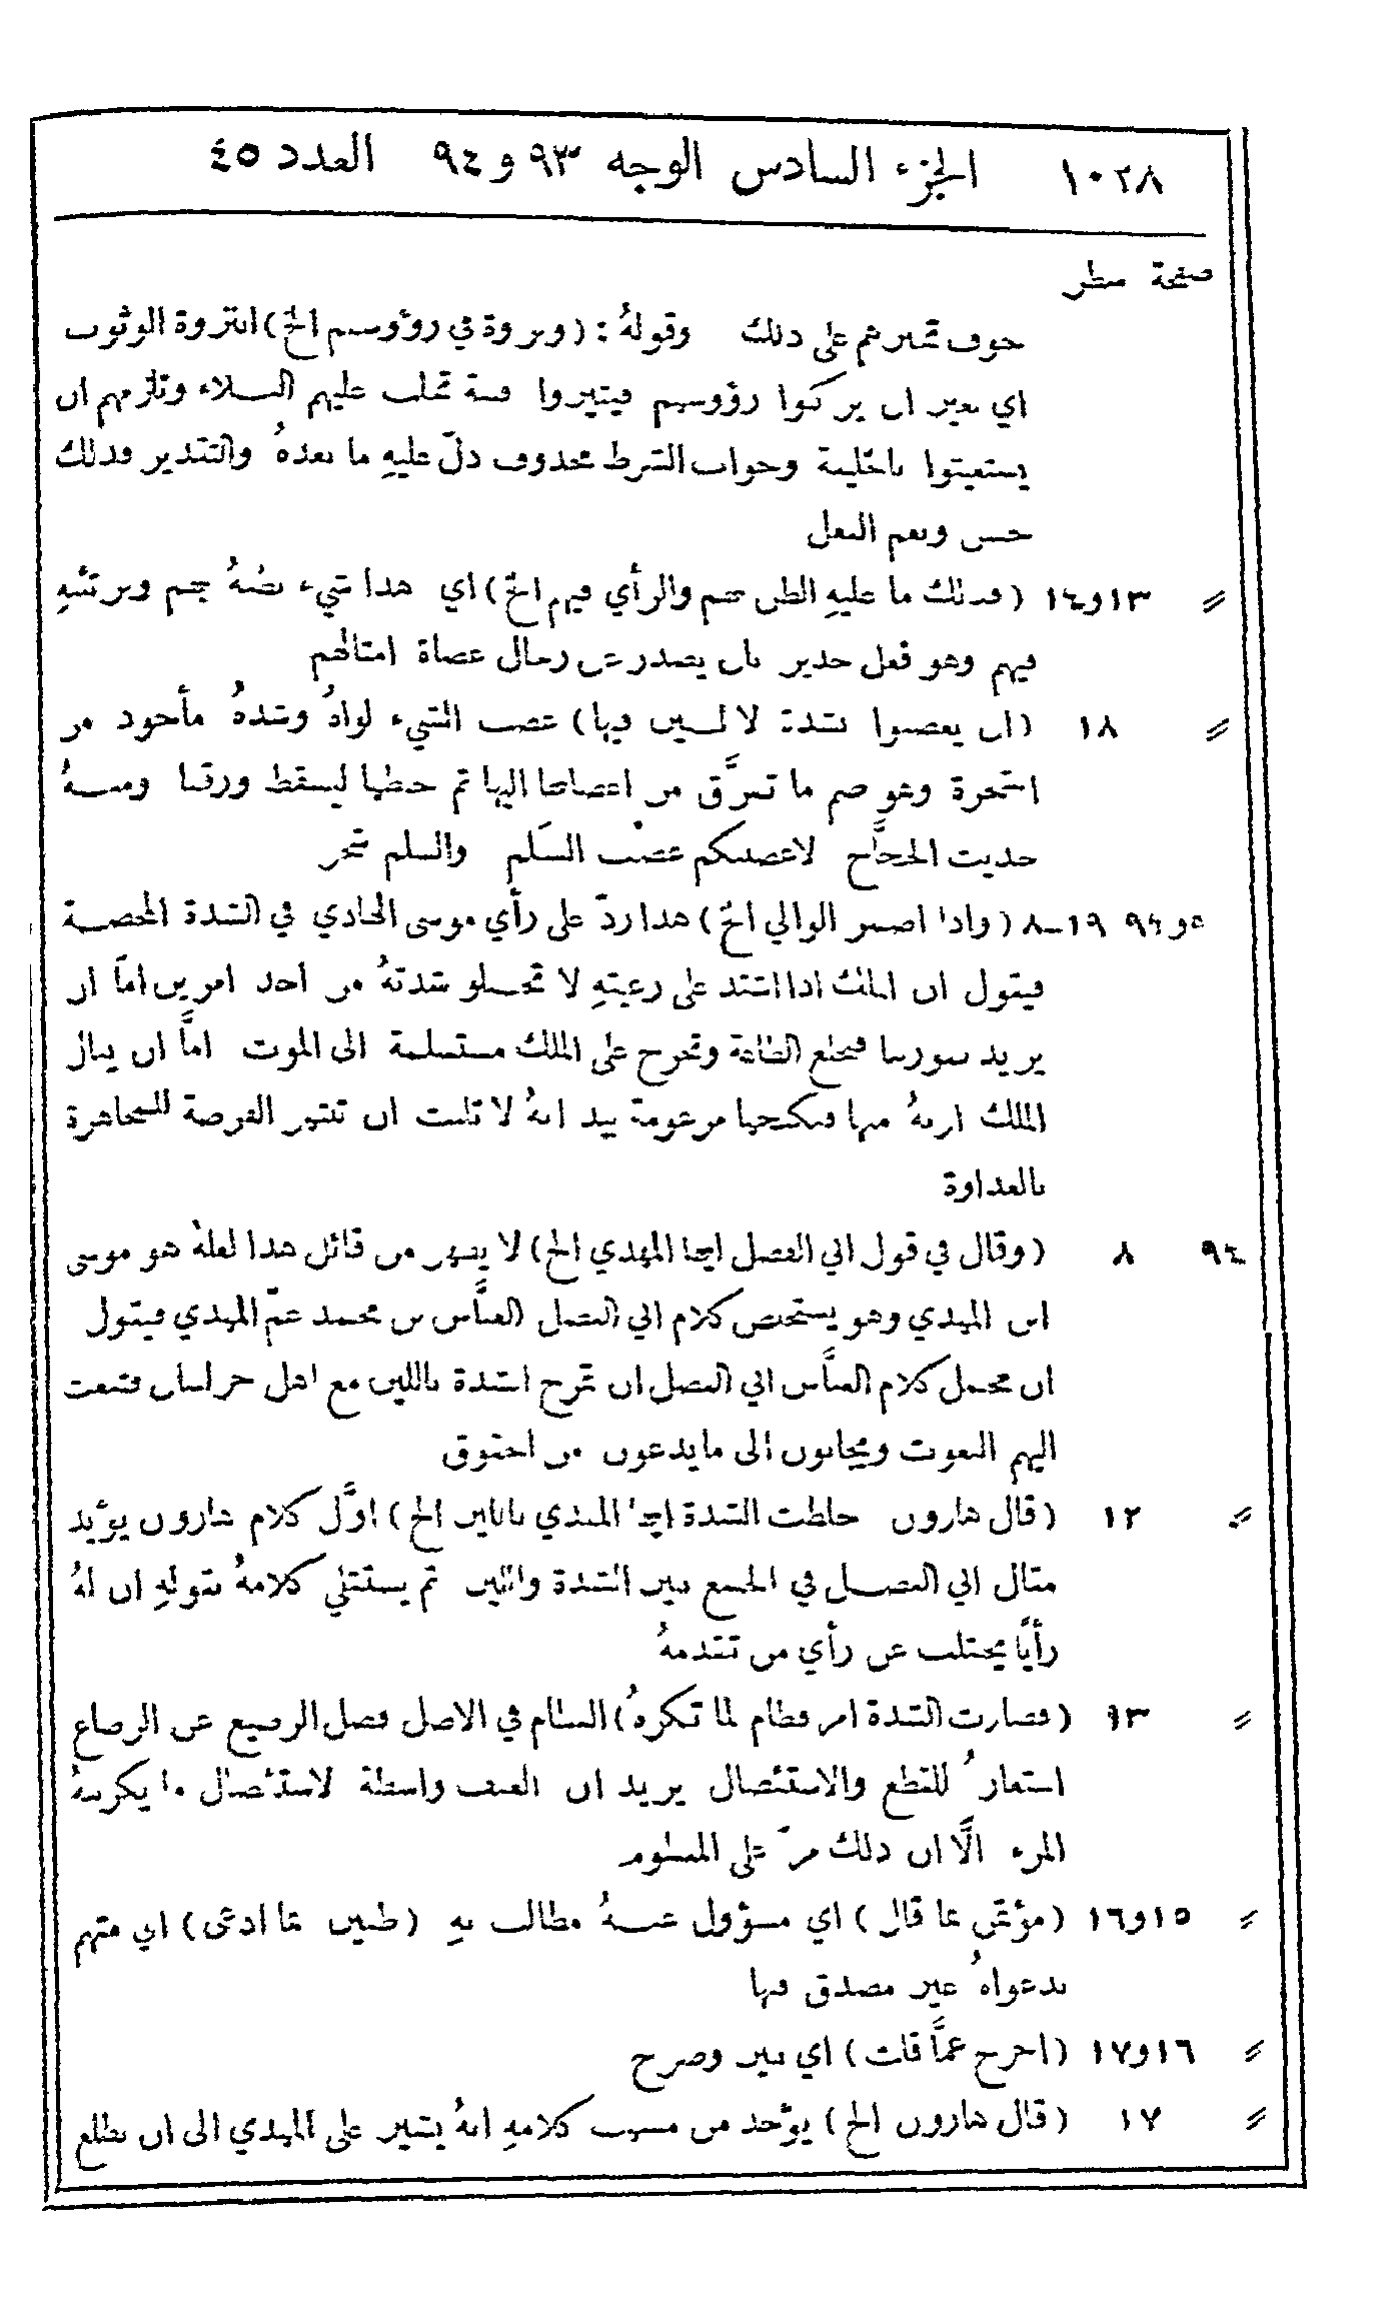 ١٠٢٨ الجزء السادس الوجه ٩٣ و ٩٤ العدد ٤٥
صفحة سطر
خوف تجبرهم على ذلك وقوله: (ونزوة في رؤوسهم الخ) النزوة الوثوب
اي بغير ان يركبوا رؤوسهم فيثيروا فتنة تجلب عليهم البلاء وتلزمهم ان
يستغيثوا بالخليفة وجواب الشرط محذوف دلّ عليهِ ما بعدهُ والتقدير فذلك
حسن ونعم الفعل
〃 ١٣و١٤ (فذلك ما عليهِ الظن بهم والرأي فيهم الخ) اي هذا شيء نظنهُ بهم ونرتئيهِ
فيهم وهو فعل جدير بان يصدر عن رجال عصاة امثالهم
〃 ١٨ (ان يعصبوا بشدة لا لين فيها) عصب الشيء لواهُ وشدهُ مأخوذ من
الشجرة وهو ضم ما تفرَّق من اغصانها اليها ثم خبطها ليسقط ورقها ومنهُ
حديث الحجَّاج لاعصبنكم عصْب السَلَم والسلم شجر
٩٣و٩٤ ١٩-٨ (واذا اصبر الوالي الخ) هذا ردّ على رأي موسى الهادي في الشدة المحضة
فيقول ان الملك اذا اشتد على رعيتهِ لا تخلو شدتهُ من احد امرين امَّا ان
يريد نفورها فتخلع الطاعة وتخرج على الملك مستسلمة الى الموت امَّا ان ينال
الملك اربهُ منها فيكبحها مرغومة بيد انهُ لا تلبث ان تنتهز الفرصة للمجاهرة
بالعداوة
٩٤ ٨ (وقال في قول ابي الفضل ايها المهدي الخ) لا يظهر من قائل هذا لعلهُ هو موسى
ابن المهدي وهو يستخلص كلام ابي الفضل العبَّاس بن محمد عمّ المهدي فيقول
ان مجمل كلام العبَّاس ابي الفضل ان تمزج الشدة باللين مع اهل خراسان فتبعث
اليهم البعوث ويجابون الى ما يدعون من الحقوق
〃 ١٢ (قال هارون خلطت الشدة ايها المهدي باللين الخ) اوَّل كلام هارون يؤيد
مقال ابي الفضل في الجمع بين الشدة واللين ثم يستتلي كلامهُ بقولهِ ان لهُ
رأيًا يختلف عن رأي من تقدمهُ
〃 ١٣ (فصارت الشدة امر فطام لما تكرهُ) الفطام في الاصل فصل الرضيع عن الرضاع
استعارهُ للقطع والاستئصال يريد ان العنف واسطة لاستئصال ما يكرههُ
المرء الَّا ان ذلك مرّ على المفطوم
〃 ١٥و١٦ (مؤتمن بما قال) اي مسؤول عنهُ مطالب بهِ (ظنين بما ادعى) اي متهم
بدعواهُ غير مصدق فيها
〃 ١٦و١٧ (اخرج عمَّا قلت) اي بين وصرح
〃 ١٧ (قال هارون الخ) يؤخذ من مسهب كلامهِ انهُ يشير على المهدي الى ان يطلع